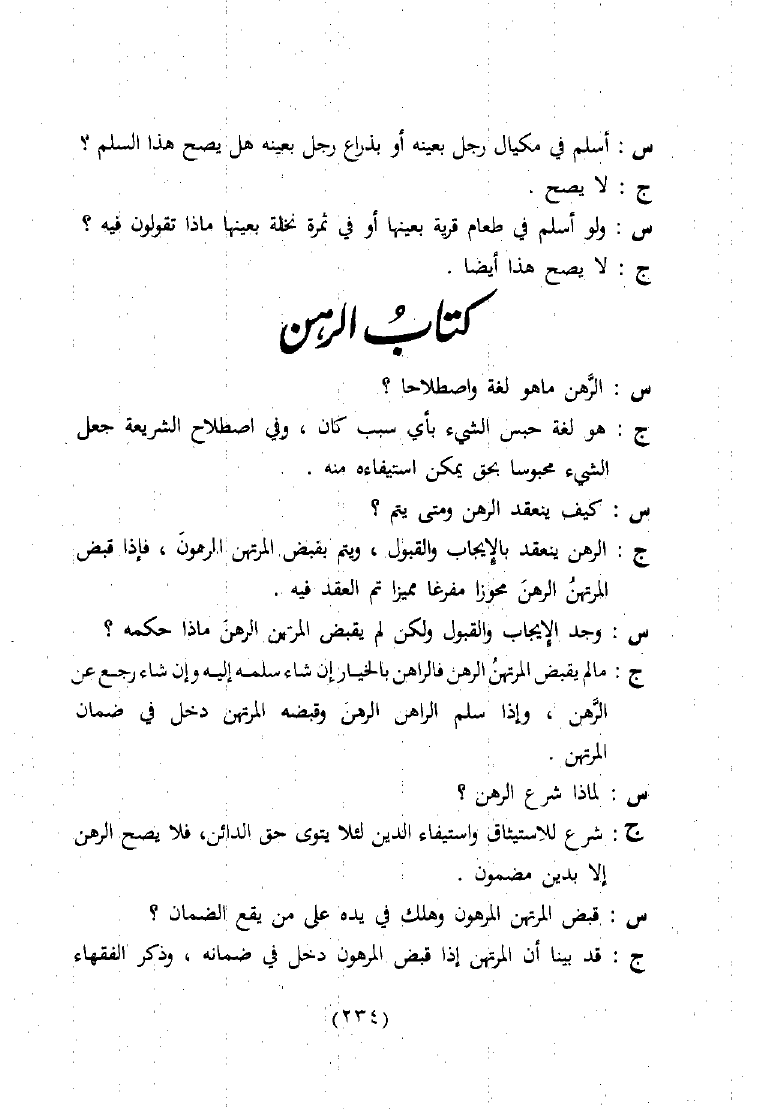 س : أسلم في مكيال رجل بعينه أو بذراع رجل بعينه هل يصح هذا السلم ؟
ج : لا يصح .
س : ولو أسلم في طعام قرية بعينها أو في ثمرة نخلة بعينها ماذا تقولون فيه ؟
ج : لا يصح هذا أيضا .
كتابُ الرهن
س : الرَّهن ماهو لغة واصطلاحا ؟
ج : هو لغة حبس الشيء بأي سبب كان ، وفي اصطلاح الشريعة جعل
الشيء محبوسا بحق يمكن استيفاءه منه .
س : كيف ينعقد الرهن ومتى يتم ؟
ج : الرهن ينعقد بالإيجاب والقبول ، ويتم بقبض المرتهن المرهونَ ، فإذا قبض
المرتهنُ الرهنَ محوزا مفرغا مميزا تم العقد فيه .
س : وجد الإيجاب والقبول ولكن لم يقبض المرتهن الرهنَ ماذا حكمه ؟
ج : مالم يقبض المرتهنُ الرهن فالراهن بالخيار إن شاء سلمه إليه وإن شاء رجع عن
الرَّهن ، وإذا سلم الراهن الرهنَ وقبضه المرتهن دخل في ضمان
المرتهن .
س : لماذا شرع الرهن ؟
ج : شرع للاستيثاق واستيفاء الدين لئلا يتوى حق الدائن، فلا يصح الرهن
إلا بدين مضمون .
س : قبض المرتهن المرهون وهلك في يده على من يقع الضمان ؟
ج : قد بينا أن المرتهن إذا قبض المرهون دخل في ضمانه ، وذكر الفقهاء
(٢٣٤)